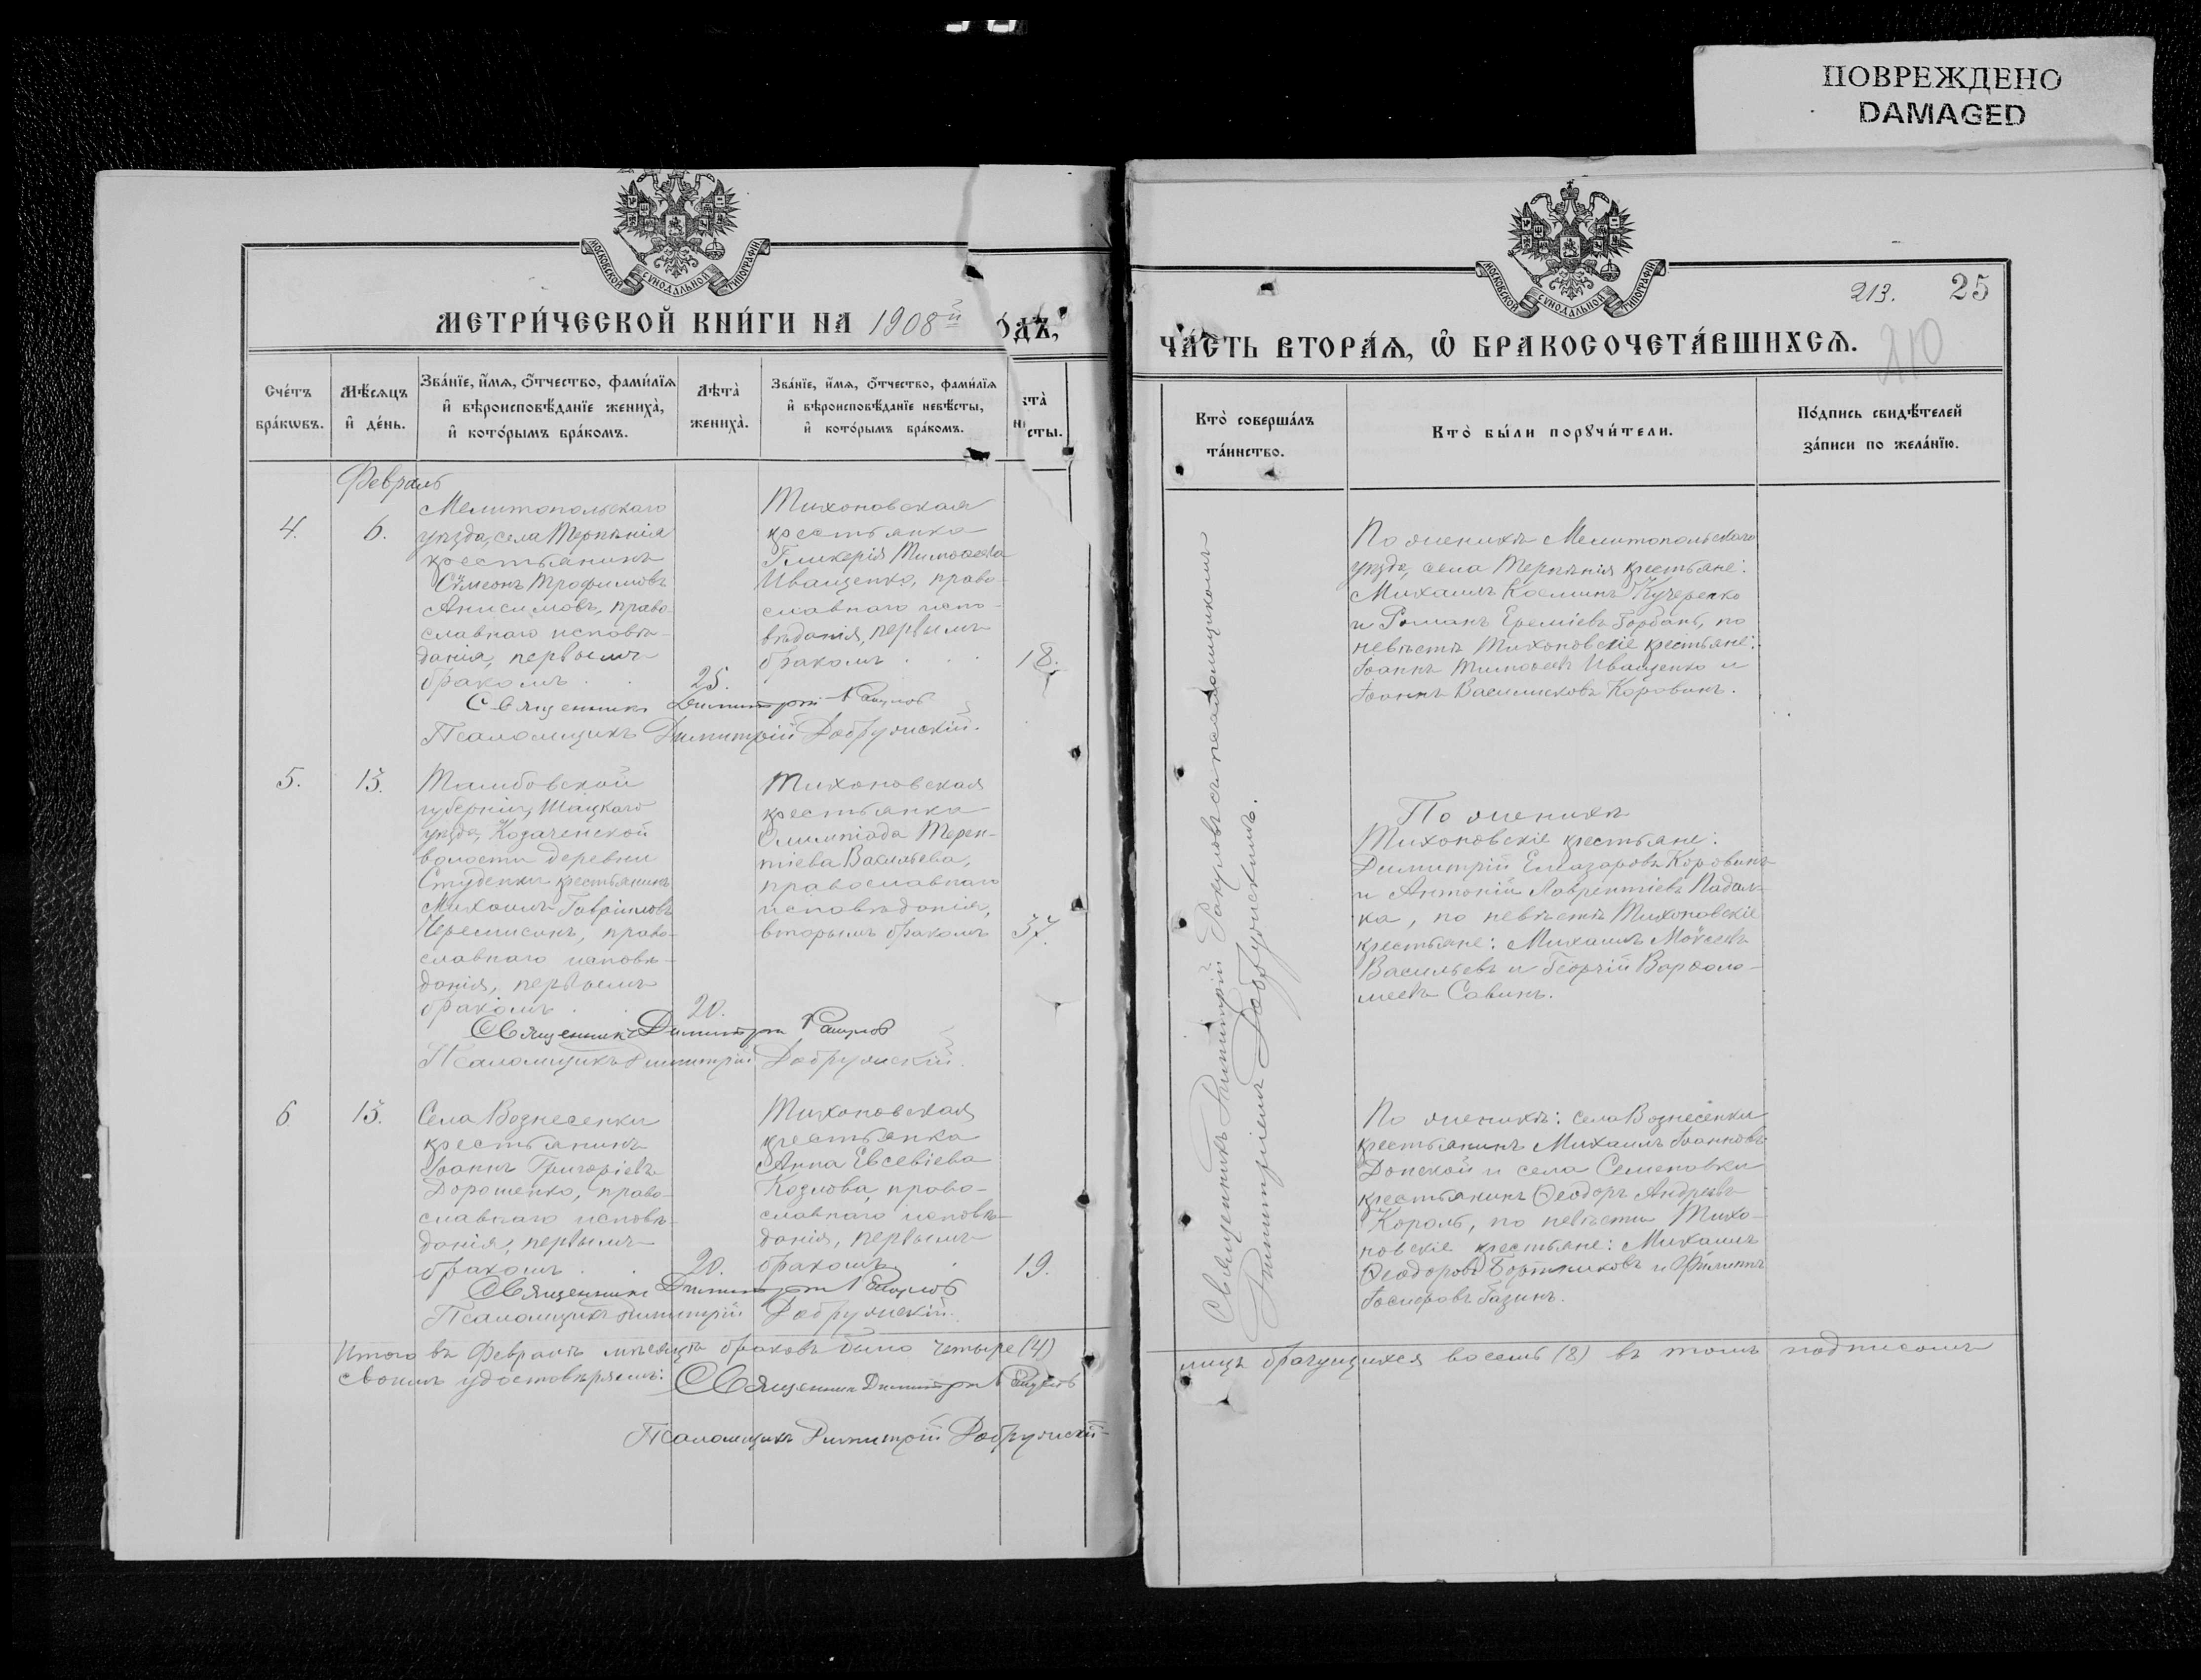 ПОВРЕЖДЕНО
DAMAGED
МОСКОВСКОЙ СѴНОДАЛЬНОЙ ТИПОГРАФІИ
МЕТРИ́ЧЕСКОЙ КНИ́ГИ НА 1908й
О́ДЪ,
Сче́тъ бра́кѡвъ.
Мѣ́сѧцъ и҆ де́нь.
Зва́нїе, и҆́мѧ, ѻ҆́тчество, фами́лїѧ
и҆ вѣроисповѣ́данїе жениха̀,
и҆ кото́рымъ бра́комъ.
Лѣ́та̀ жениха̀.
Зва́нїе, и҆́мѧ, ѻ҆́тчество, фами́лїѧ
и҆ вѣроисповѣ́данїе невѣ́сты,
и҆ кото́рымъ бра́комъ.
та̀
сты.
Февраль
4.
6.
Мелитопольскаго
уѣзда, села Терпѣнія
крестьянинъ
Сѵмеонъ Трофимовъ
Анисимовъ, право-
славнаго исповѣ-
данія, первымъ
бракомъ
25.
Тихоновская
крестьянка
Гликерія Тимоѳеева
Иващенко, право-
славнаго испо-
вѣданія, первымъ
бракомъ
18.
Священникъ Димитрій
Псаломщикъ Димитрій Добрунскій.
5.
13.
Тамбовской
губерніи, Шацкаго
уѣзда, Козаченской
волости деревни
Студенки крестьянинъ
Михаилъ Гавріиловъ
Черемисинъ, право-
славнаго исповѣ-
данія, первымъ
бракомъ
20.
Тихоновская
крестьянка
Олимпіада Терен-
тіева Васильева,
православнаго
исповѣданія,
вторымъ бракомъ
37.
Священникъ Димитрій
Псаломщикъ Димитрій Добрунскій.
6
13.
Села Вознесенки
крестьянинъ
Іоаннъ Григоріевъ
Дорошенко, право-
славнаго исповѣ-
данія, первымъ
бракомъ
20.
Тихоновская
крестьянка
Анна Евсевіева
Козлова, право-
славнаго исповѣ-
данія, первымъ
бракомъ
19.
Священникъ Димитрій
Псаломщикъ Димитрій Добрунскій.
Итого въ Февралѣ мѣсяцѣ браковъ было четыре (4)
своимъ удостовѣряемъ: Священникъ Димитрій
Псаломщикъ Димитрій Добрунскій
МОСКОВСКОЙ СѴНОДАЛЬНОЙ ТИПОГРАФІИ
213.
25
210
ЧА́СТЬ ВТОРА́Ѧ, Ѽ БРАКОСОЧЕТА́ВШИХСѦ.
Кто̀ соверша́лъ та́инство.
Кто̀ бы́ли порꙋчи́тели.
По́дпись свидѣ́телей за́писи по жела́нїю.
Священникъ Димитрій съ псаломщикомъ
Димитріемъ Добрунскимъ.
По женихѣ Мелитопольскаго
уѣзда, села Терпѣнія крестьяне:
Михаилъ Косминъ Кучеренко
и Романъ Ереміевъ Горбань, по
невѣстѣ Тихоновскіе крестьяне:
Іоаннъ Тимоѳеевъ Иващенко и
Іоаннъ Василисковъ Коровинъ.
По женихѣ
Тихоновскіе крестьяне:
Димитрій Елеазаровъ Коровинъ
и Антоній Лаврентіевъ Падал-
ка, по невѣстѣ Тихоновскіе
крестьяне: Михаилъ Моѵсеевъ
Васильевъ и Георгій Варѳоло-
меевъ Савинъ.
По женихѣ: села Вознесенки
крестьянинъ Михаилъ Іоанновъ
Донской и села Семеновки
крестьянинъ Ѳеодоръ Андреевъ
Король, по невѣстѣ Тихо-
новскіе крестьяне: Михаилъ
Ѳеодоровъ Бортниковъ и Филиппъ
Іосифовъ Газинъ.
лицъ брачущихся восемь (8) въ томъ подписомъ